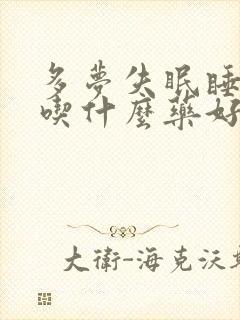 多夢失眠睡
喫什麼藥好
大衛-海克沃